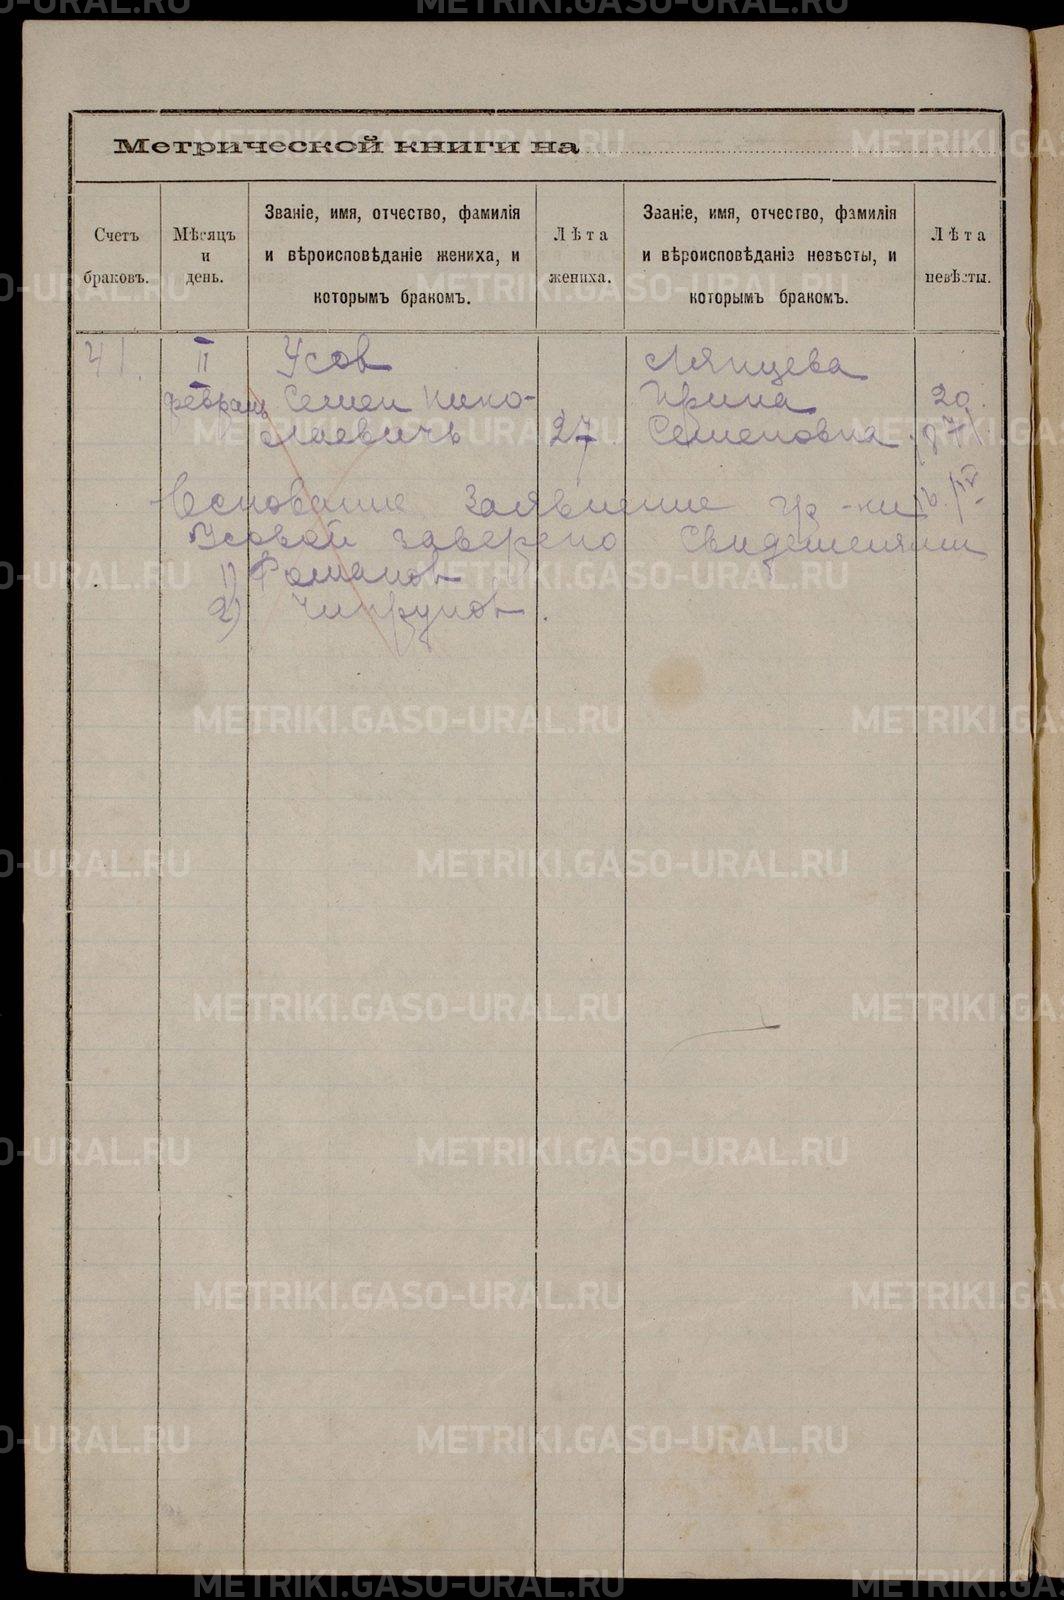 Метрической книги на
Счетъ браковъ.
Мѣсяцъ и день.
Званіе, имя, отчество, фамилія
и вѣроисповѣданіе жениха, и
которымъ бракомъ.
Лѣта жениха.
Званіе, имя, отчество, фамилія
и вѣроисповѣданіе невѣсты, и
которымъ бракомъ.
Лѣта невѣсты.
41. 11 Усов Ляпцева
февраль Семен Нико- Ирина 20
лаевичъ 27 Семеновна
Основание Заявление гр-ки
Усовой заверено Свидетелями
1) Романов
2)
METRIKI.GASO-URAL.RU